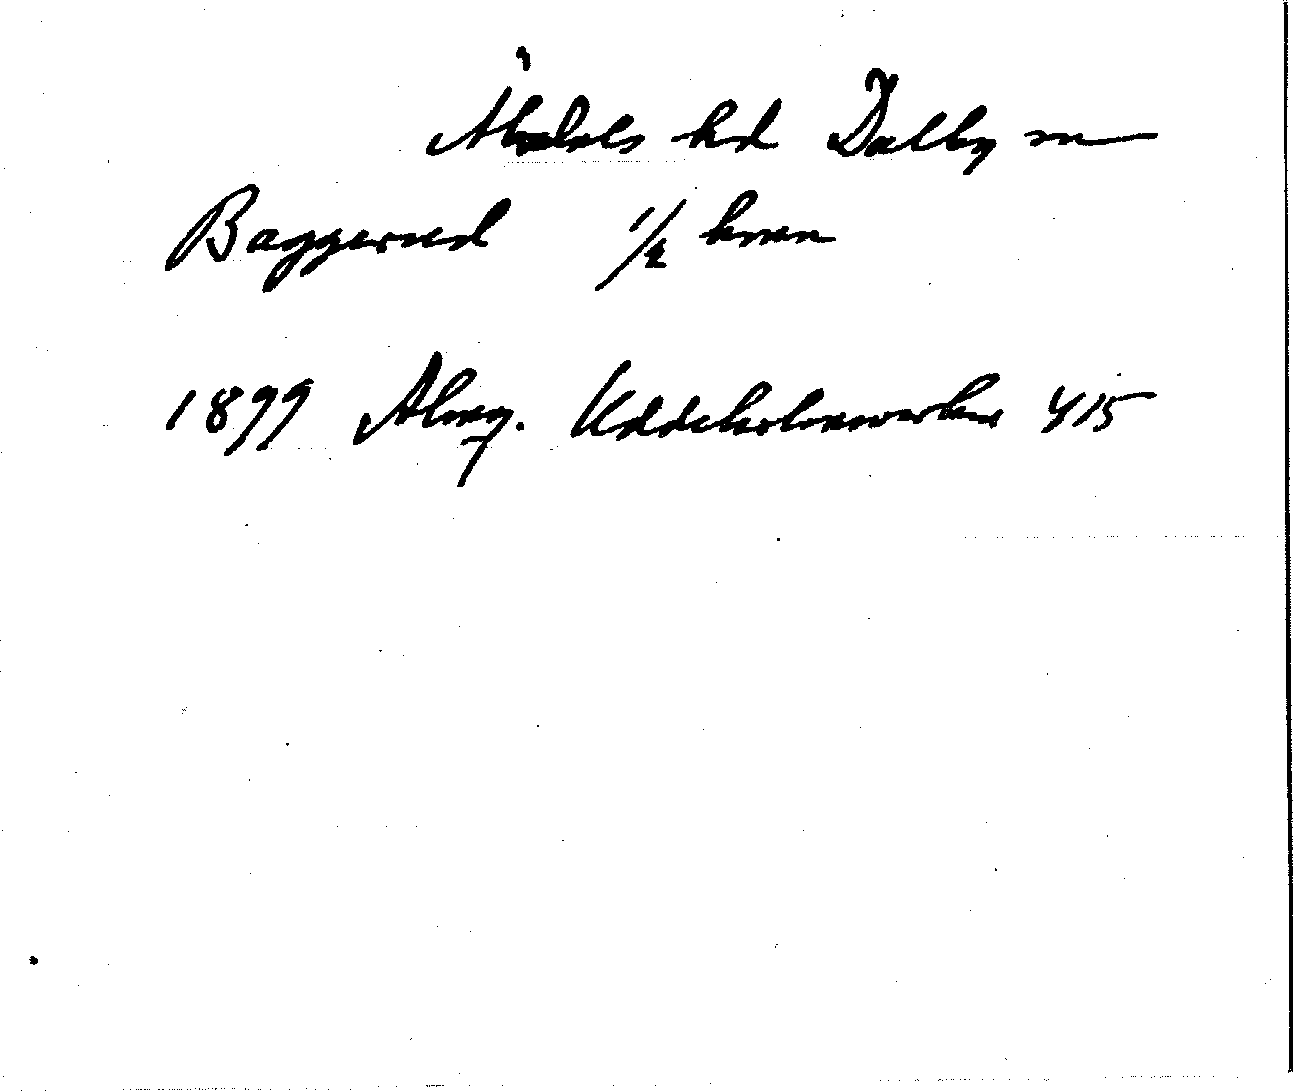 Älvdals hd Dalby sn
Baggerud 1/2 hmn
1899 Alma. Uddeholmsverken 415